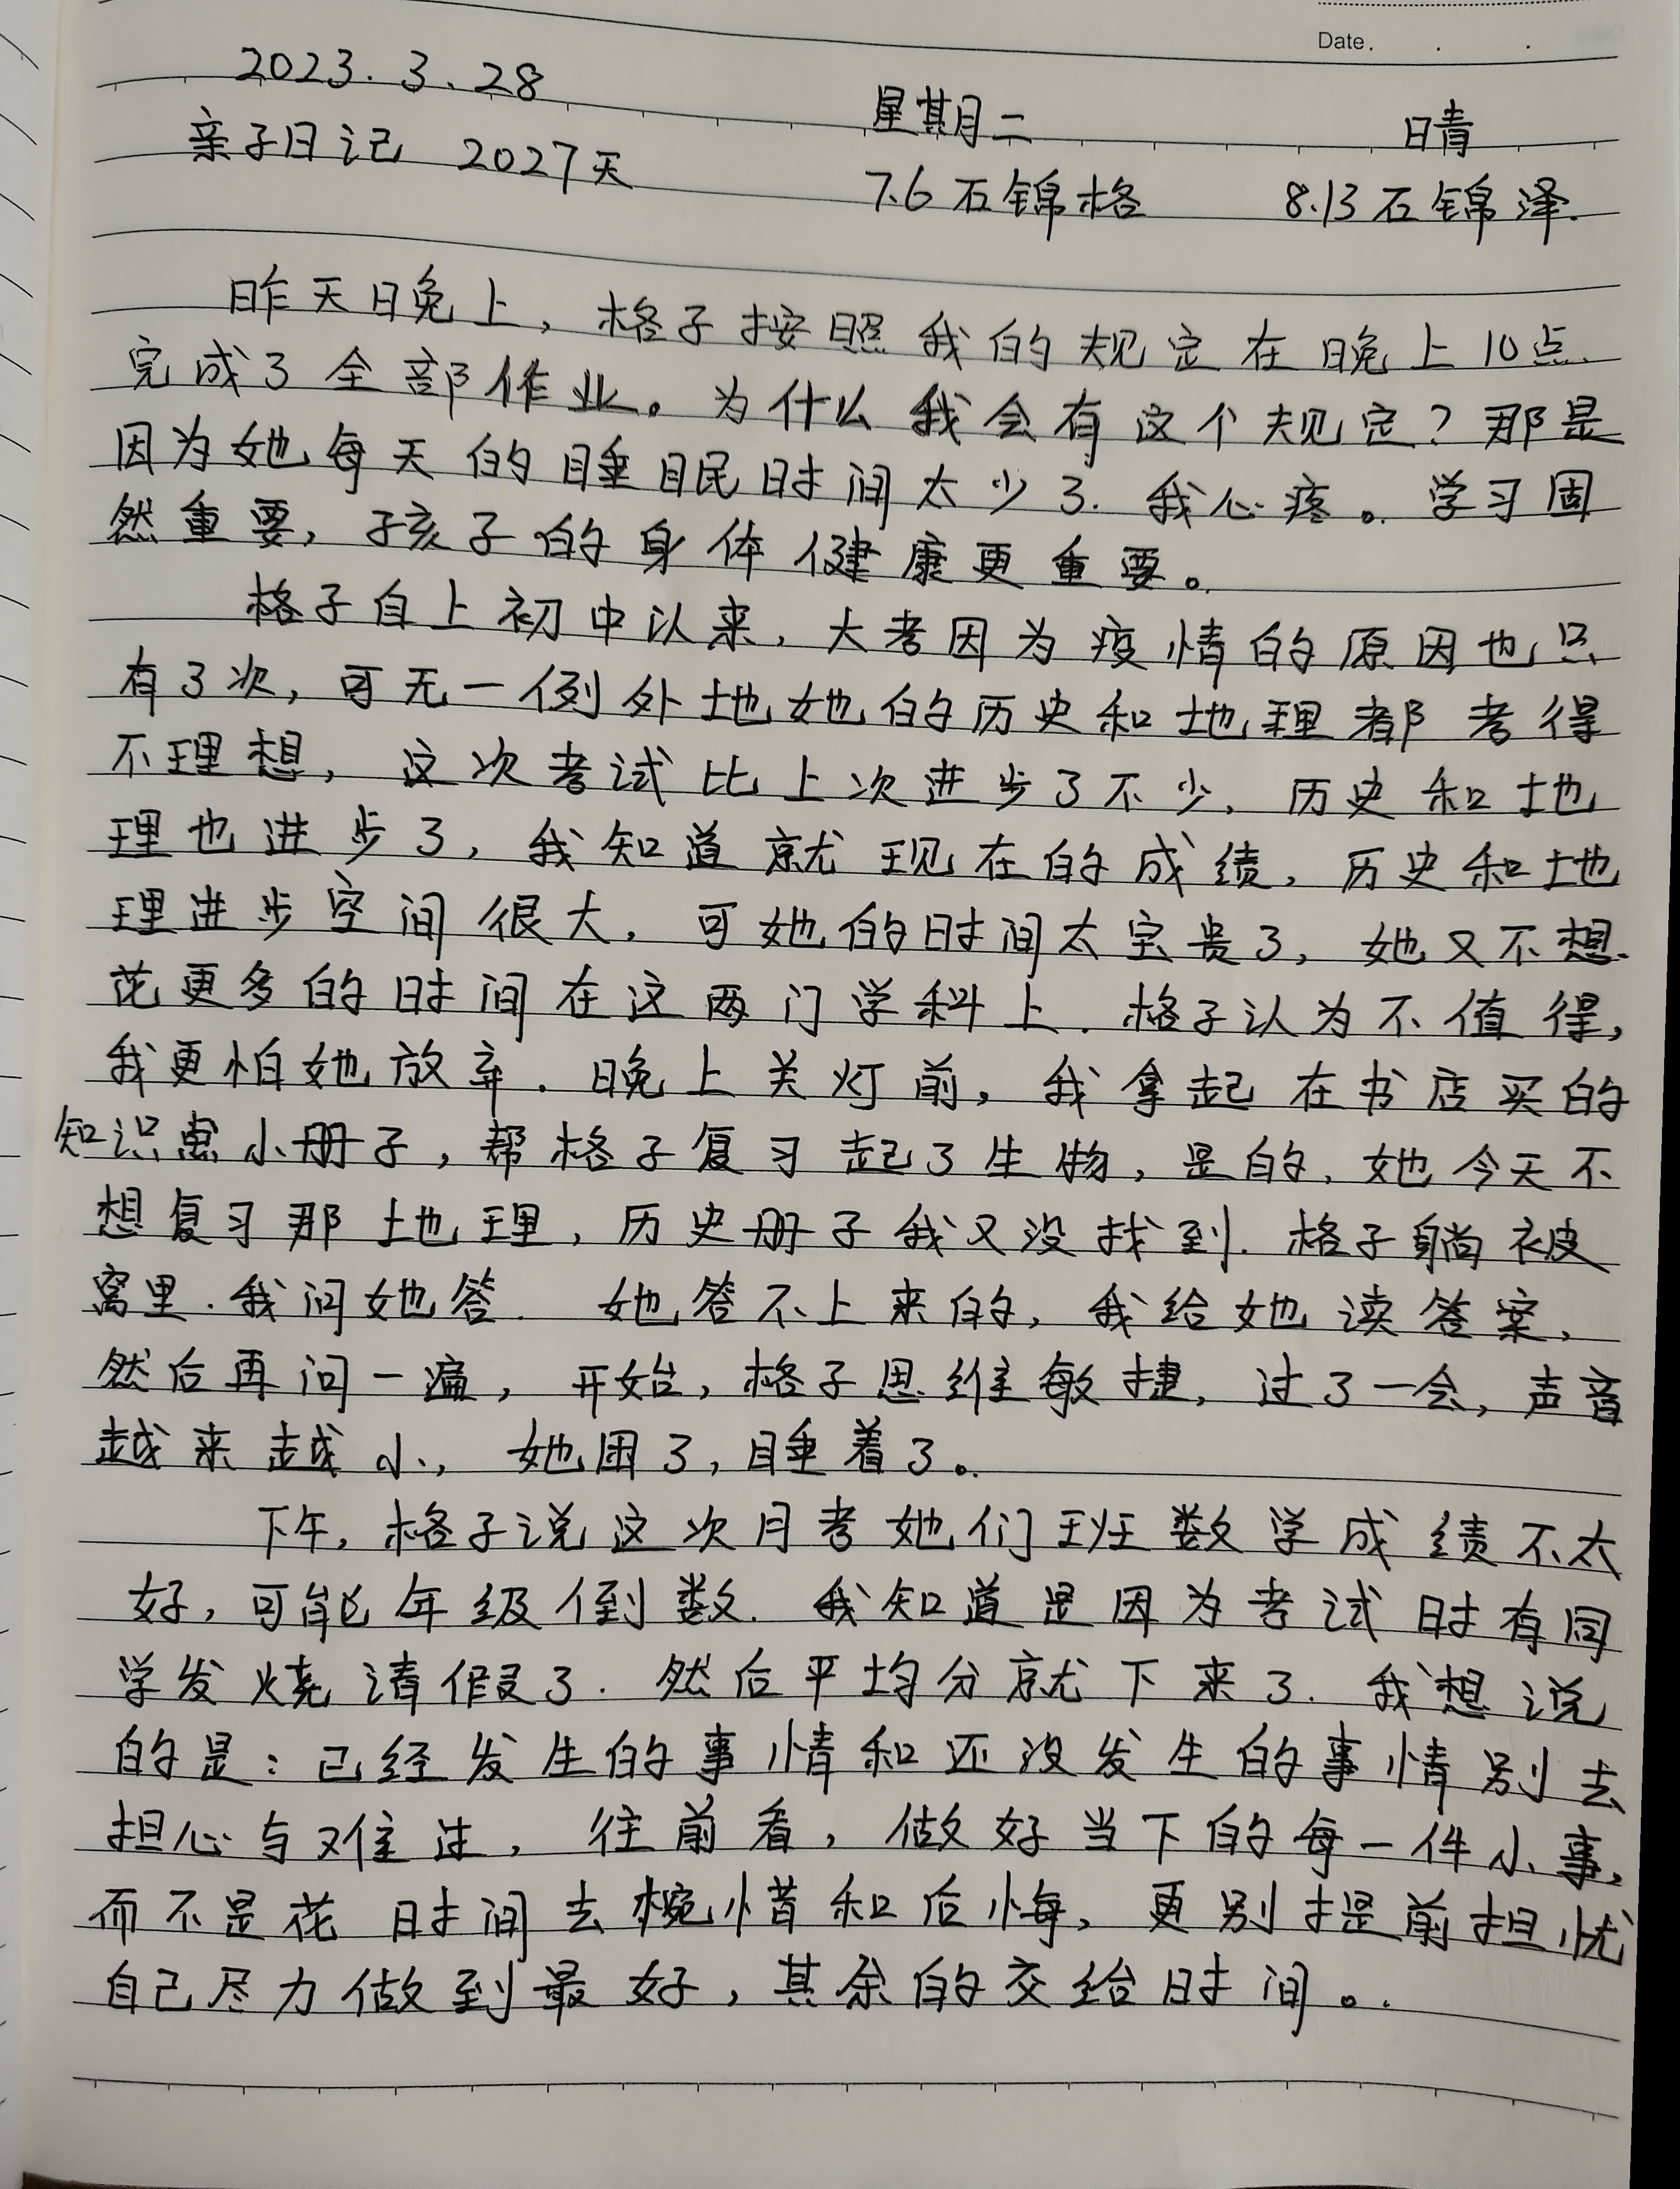 Date. . .
2023.3.28 星期二 晴
亲子日记 2027天 7.6石锦格 8.13石锦泽.
昨天晚上,格子按照我的规定在晚上10点
完成了全部作业。为什么我会有这个规定?那是
因为她每天的睡眠时间太少了.我心疼。学习固
然重要,孩子的身体健康更重要。
格子自上初中以来,大考因为疫情的原因也只
有3次,可无一例外地她的历史和地理都考得
不理想,这次考试比上次进步了不少,历史和地
理也进步了,我知道就现在的成绩,历史和地
理进步空间很大,可她的时间太宝贵了,她又不想
花更多的时间在这两门学科上.格子认为不值得,
我更怕她放弃.晚上关灯前,我拿起在书店买的
知识点小册子,帮格子复习起了生物,是的,她今天不
想复习那地理,历史册子我又没找到.格子躺被
窝里.我问她答.她答不上来的,我给她读答案,
然后再问一遍,开始,格子思维敏捷,过了一会,声音
越来越小,她困了,睡着了。
下午,格子说这次月考她们班数学成绩不太
好,可能年级倒数.我知道是因为考试时有同
学发烧请假了.然后平均分就下来了.我想说
的是:已经发生的事情和还没发生的事情别去
担心与难过,往前看,做好当下的每一件小事,
而不是花时间去惋惜和后悔,更别提前担忧
自己尽力做到最好,其余的交给时间。